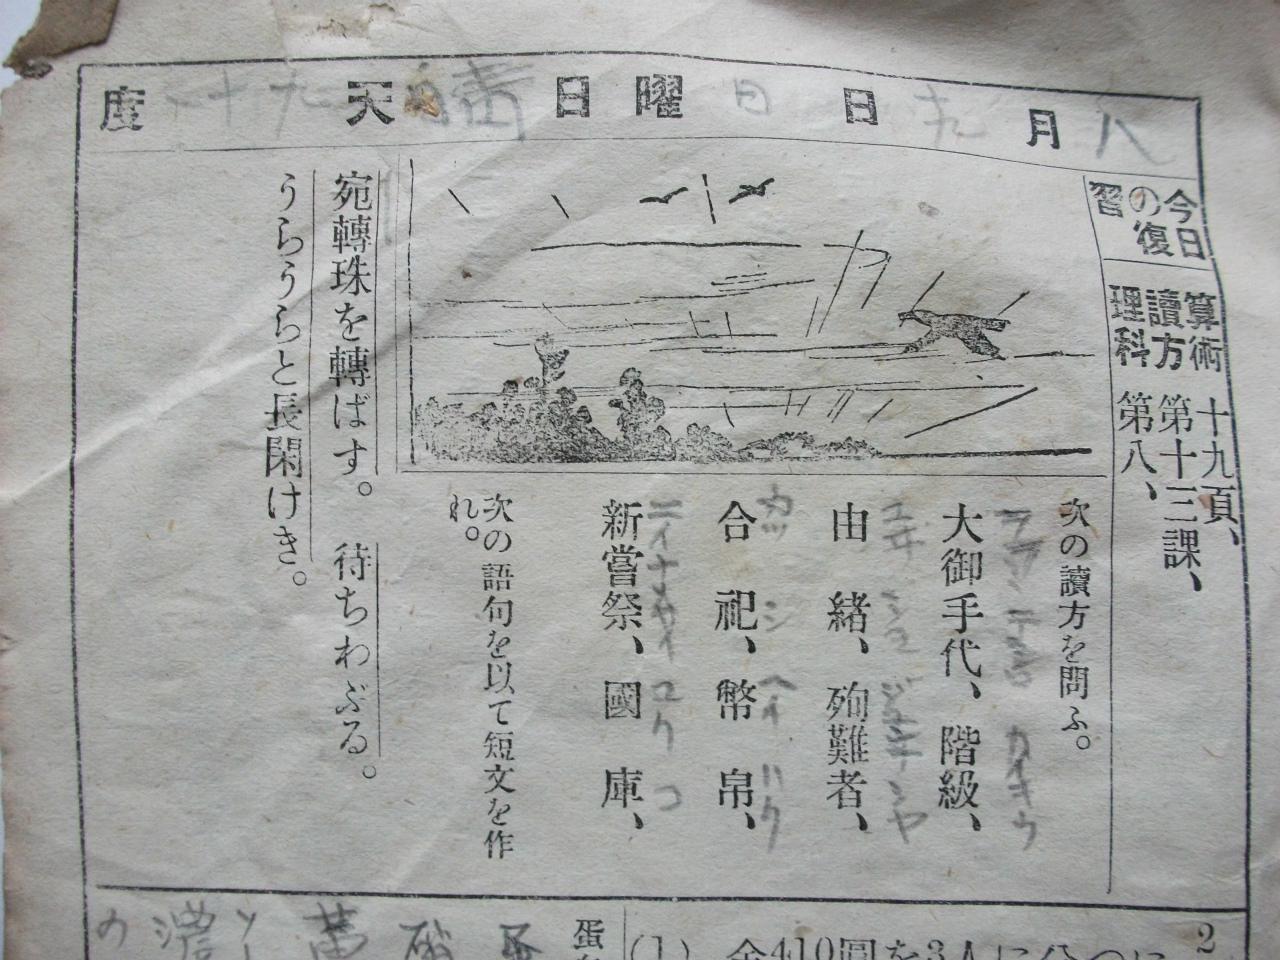 八月 九日 日曜日 晴天 二十九度
今日の復習
算術 十九頁、
讀方 第十三課、
理科 第八、
次の讀方を問ふ。
大御手代、階級、
カイキウ
由緒、殉難者、
合祀、幣帛、
ガツシ ヘイハク
新嘗祭、國庫、
ニイナメサイ コクコ
次の語句を以て短文を作
れ。
宛轉珠を轉ばす。 待ちわぶる。
うらうらと長閑けき。
2
(1) 金410圓を3人に分つに
蛋